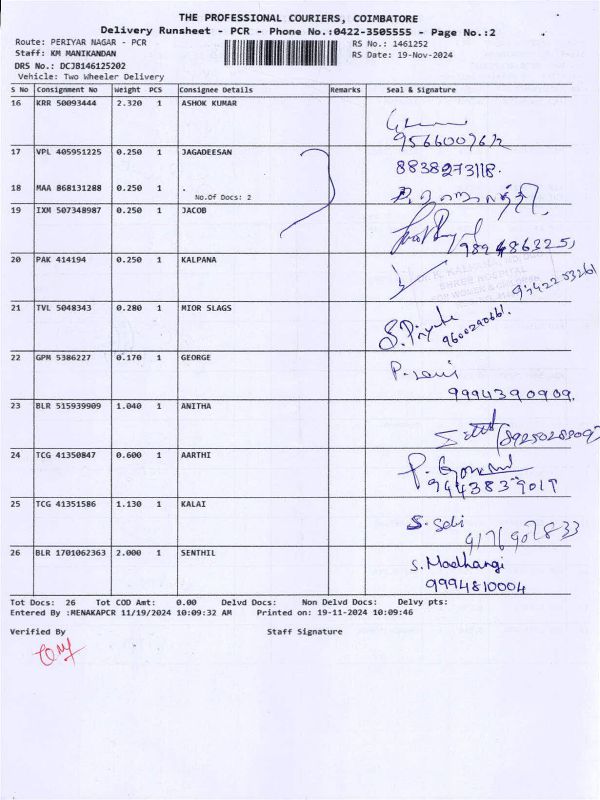 THE PROFESSIONAL COURIERS, COIMBATORE
Delivery Runsheet - PCR - Phone No.:0422-3505555 - Page No.:2
Route: PERIYAR NAGAR - PCR
RS No.: 1461252
Staff: KM MANIKANDAN
RS Date: 19-Nov-2024
DRS No.: DCJB146125202
Vehicle: Two Wheeler Delivery
S No Consignment No Weight PCS Consignee Details Remarks Seal & Signature
16 KRR 50093444 2.320 1 ASHOK KUMAR
17 VPL 405951225 0.250 1 JAGADEESAN
8838273118.
18 MAA 868131288 0.250 1
No.Of Docs: 2
19 IXM 507348987 0.250 1 JACOB
20 PAK 414194 0.250 1 KALPANA
21 TVL 5048343 0.280 1 MIOR SLAGS
S. Priya
22 GPM 5386227 0.170 1 GEORGE
9994390909.
23 BLR 515939909 1.040 1 ANITHA
24 TCG 41350847 0.600 1 AARTHI
25 TCG 41351586 1.130 1 KALAI
26 BLR 1701062363 2.000 1 SENTHIL
S. Madhangi
9994810004
Tot Docs: 26 Tot COD Amt: 0.00 Delvd Docs: Non Delvd Docs: Delvy pts:
Entered By :MENAKAPCR 11/19/2024 10:09:32 AM Printed on: 19-11-2024 10:09:46
Verified By Staff Signature